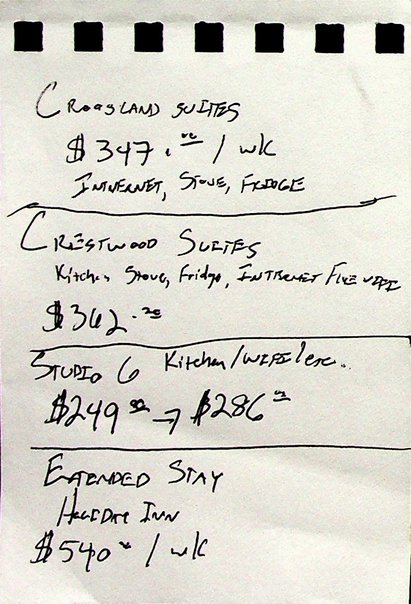 CROSSLAND SUITES
$347.00 / wk
INTNERNET, STOVE, FRIDGE
CRESTWOOD SUITES
Kitchen Stove, Fridge, INTERNET FREE WIFI
$362.00
STUDIO 6 Kitchen/WIFI/etc..
$249 00 → $286 00
EXTENDED STAY
HOLIDAY INN
$540 00 / wk